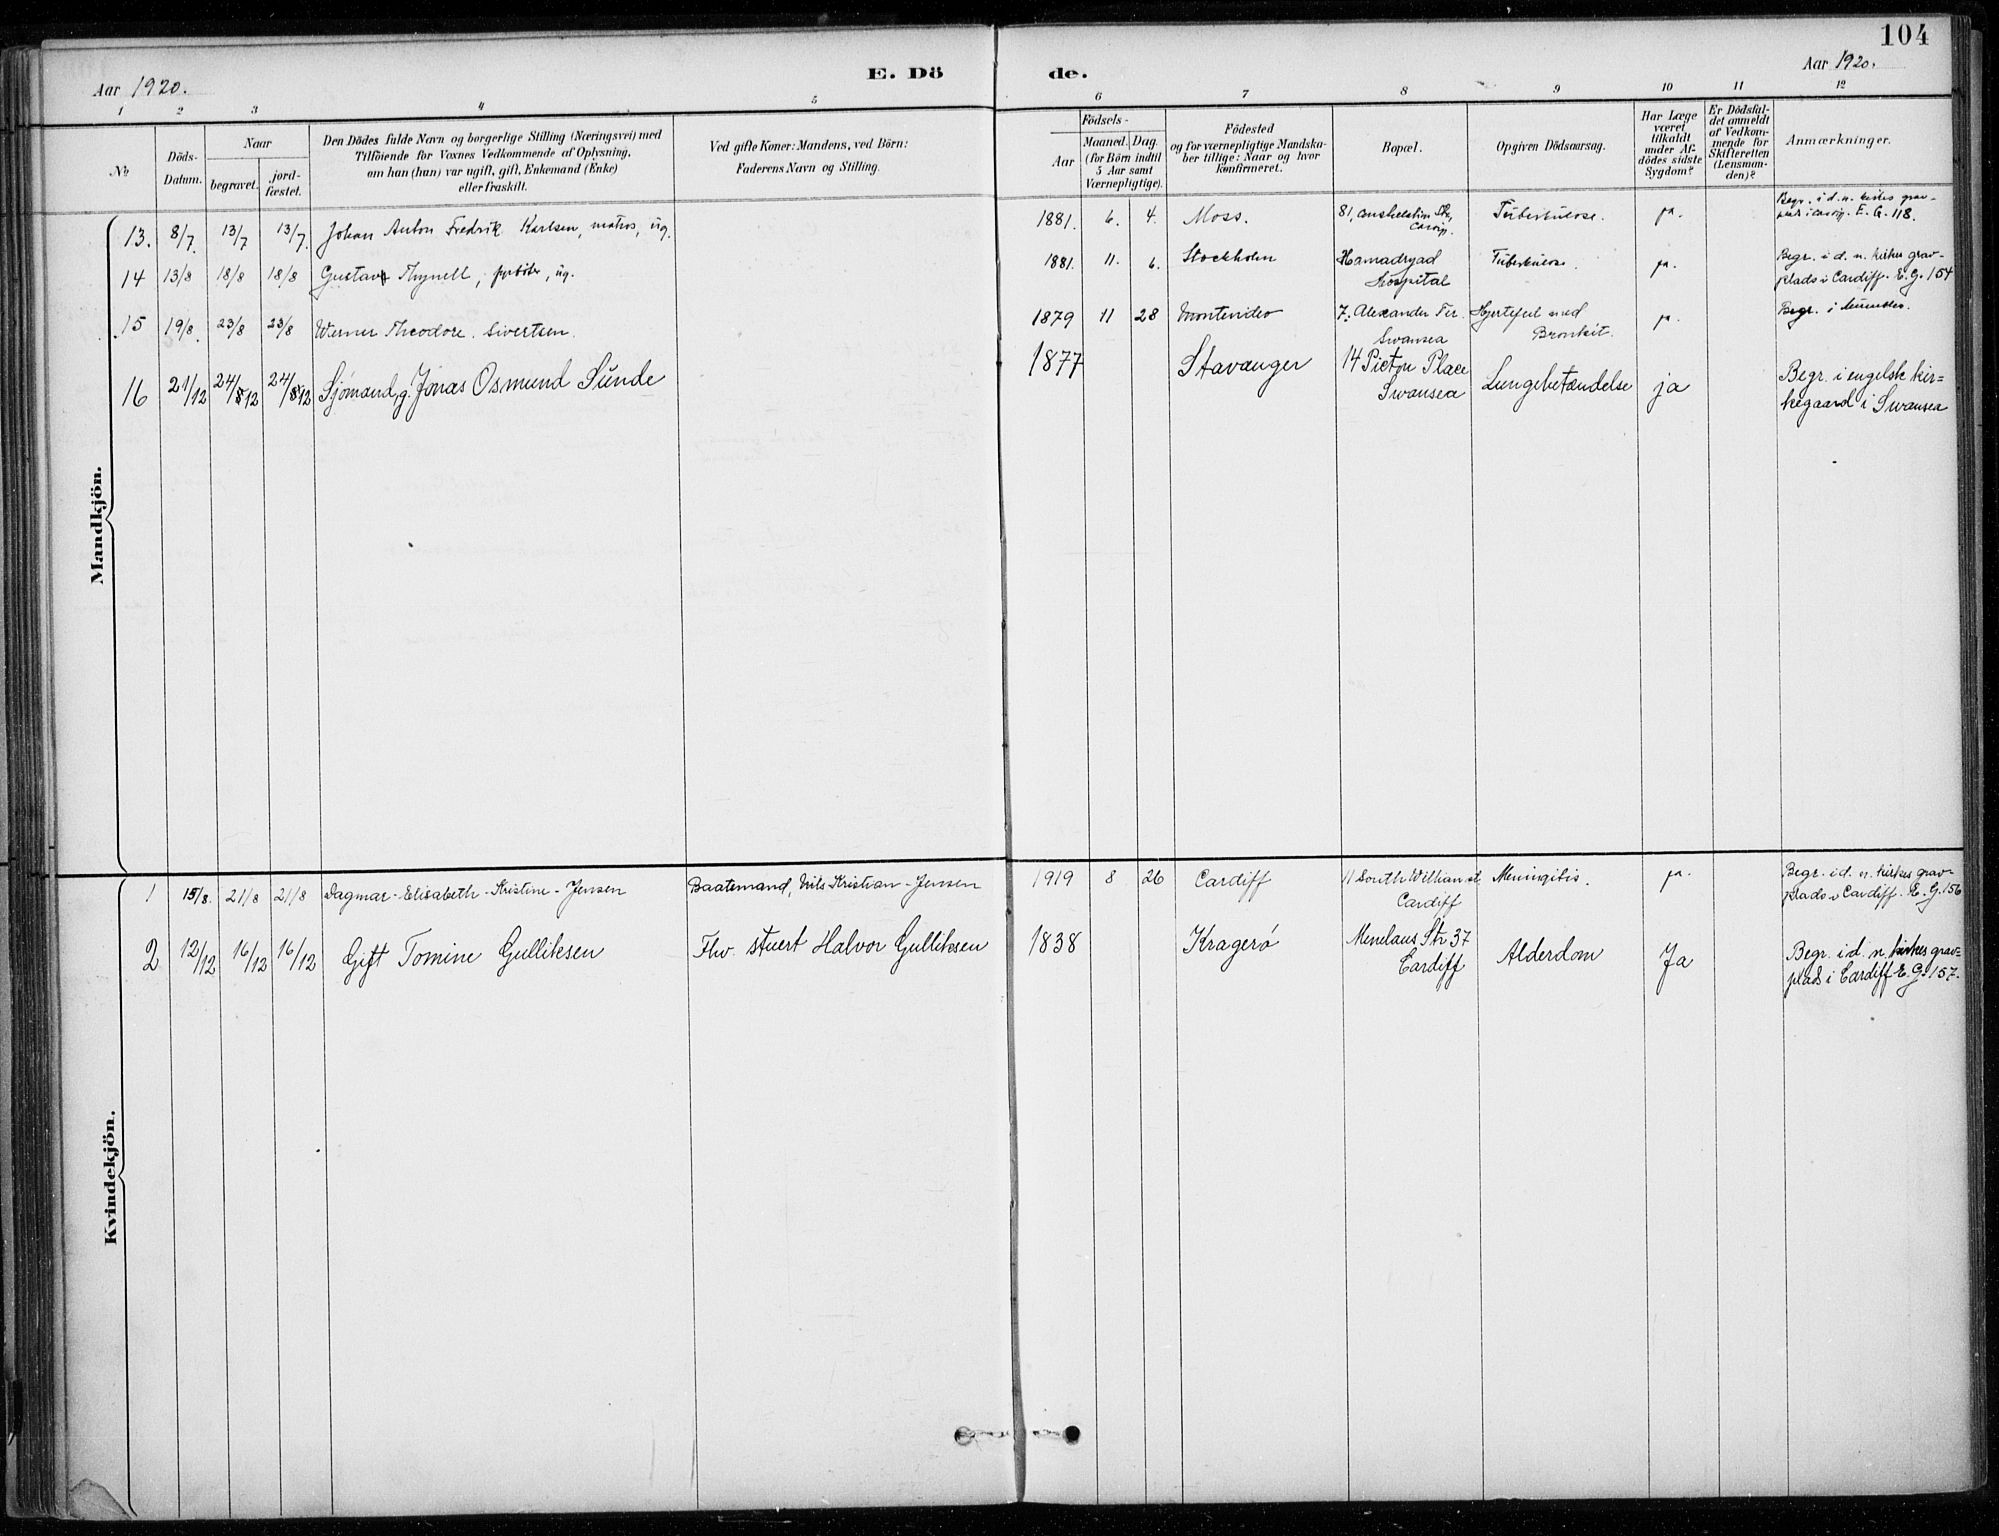 104
E. Dö de.
Aar 1920. Aar 1920.
1 2 3 4 5 6 7 8 9 10 11 12
No
Döds-Datum.
Naar
begravet.
jord-fæstet.
Den Dödes fulde Navn og borgerlige Stilling (Næringsvei) med
Tilföiende for Voxnes Vedkommende af Oplysning,
om han (hun) var ugift, gift, Enkemand (Enke)
eller fraskilt.
Ved gifte Koner: Mandens, ved Börn:
Faderens Navn og Stilling.
Födsels-
Aar
Maaned. Dag.
(for Börn indtil
5 Aar samt
Værnepligtige).
Födested
og for værnepligtige Mandska-
ber tillige: Naar og hvor
konfirmeret.
Bopæl.
Opgiven Dödsaarsag.
Har Læge
været
tilkaldt
under Af-
dödes sidste
Sygdom?
Er Dödsfal-
det anmeldt
af Vedkom-
mende for
Skifteretten
(Lensman-
den)?
Anmærkninger.
Mandkjön.
13. 8/7. 13/7 13/7. Johan Anton Fredrik Karlsen, matros, ug. 1881. 6. 4. Moss. 81, Tuberkulose. ja. Begr. i d. n. kirkes grav-
E. G. 118.
14 13/8 18/8 18/8 Gustav Thynell, fyrböter, ug. 1881. 11. 6. Stockholm Hamadryad Tuberkulose. ja. Begr. i d. n. kirkes grav-
Hospital plads i Cardiff. E. G. 154
15 19/8. 23/8 23/8 Werner Theodore. Sivertsen. 1879 11 28 Montevideo 7. Alexander Ter. Hjertefeil med ja. Begr. i
Swansea Bronkit.
16 21/12 24/12 24/12 Sjömand, g. Jonas Osmund Sunde 1877 Stavanger 14 Picton Place Lungebetændelse ja Begr. i engelsk kir=
Swansea kegaard i Swansea
Kvindekjön.
1 15/8. 21/8 21/8 Dagmar-Elisabeth-Kristine-Jensen Baatsmand, Nils Kristian-Jensen 1919 8 26 Cardiff 11 South William st. Meningitis. ja. Begr. i d. n. kirkes grav-
Cardiff plads i Cardiff. E. G. 156
2 12/12 16/12 16/12 Gift Tomine Gulliksen Fhv. stuert Halvor Gulliksen 1838 Kragerö Menelaus Str 37 Alderdom Ja Begr. i d. n. kirkes grav=
Cardiff plads i Cardiff E. G. 157.